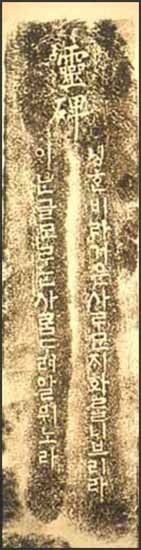 靈碑
녕ᄒᆞᆫ비라거운사ᄅᆞᄆᆞᆫᄌᆡ화ᄅᆞᆯ니브리라
이ᄂᆞᆫ글모ᄅᆞᄂᆞᆫ사ᄅᆞᆷᄃᆞ려알위노라